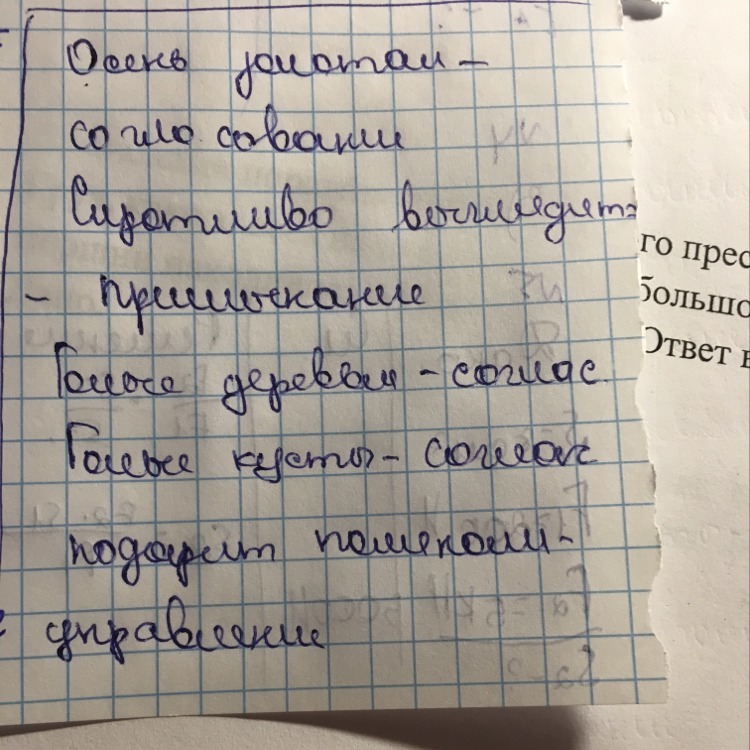 Осень золотая –
согласовани
Сиротливо выглядит-
– примыкание
Голые деревья – соглас.
Голые кусты – соглас
подарит полянам-
управление
го прес
большо
Ответ в